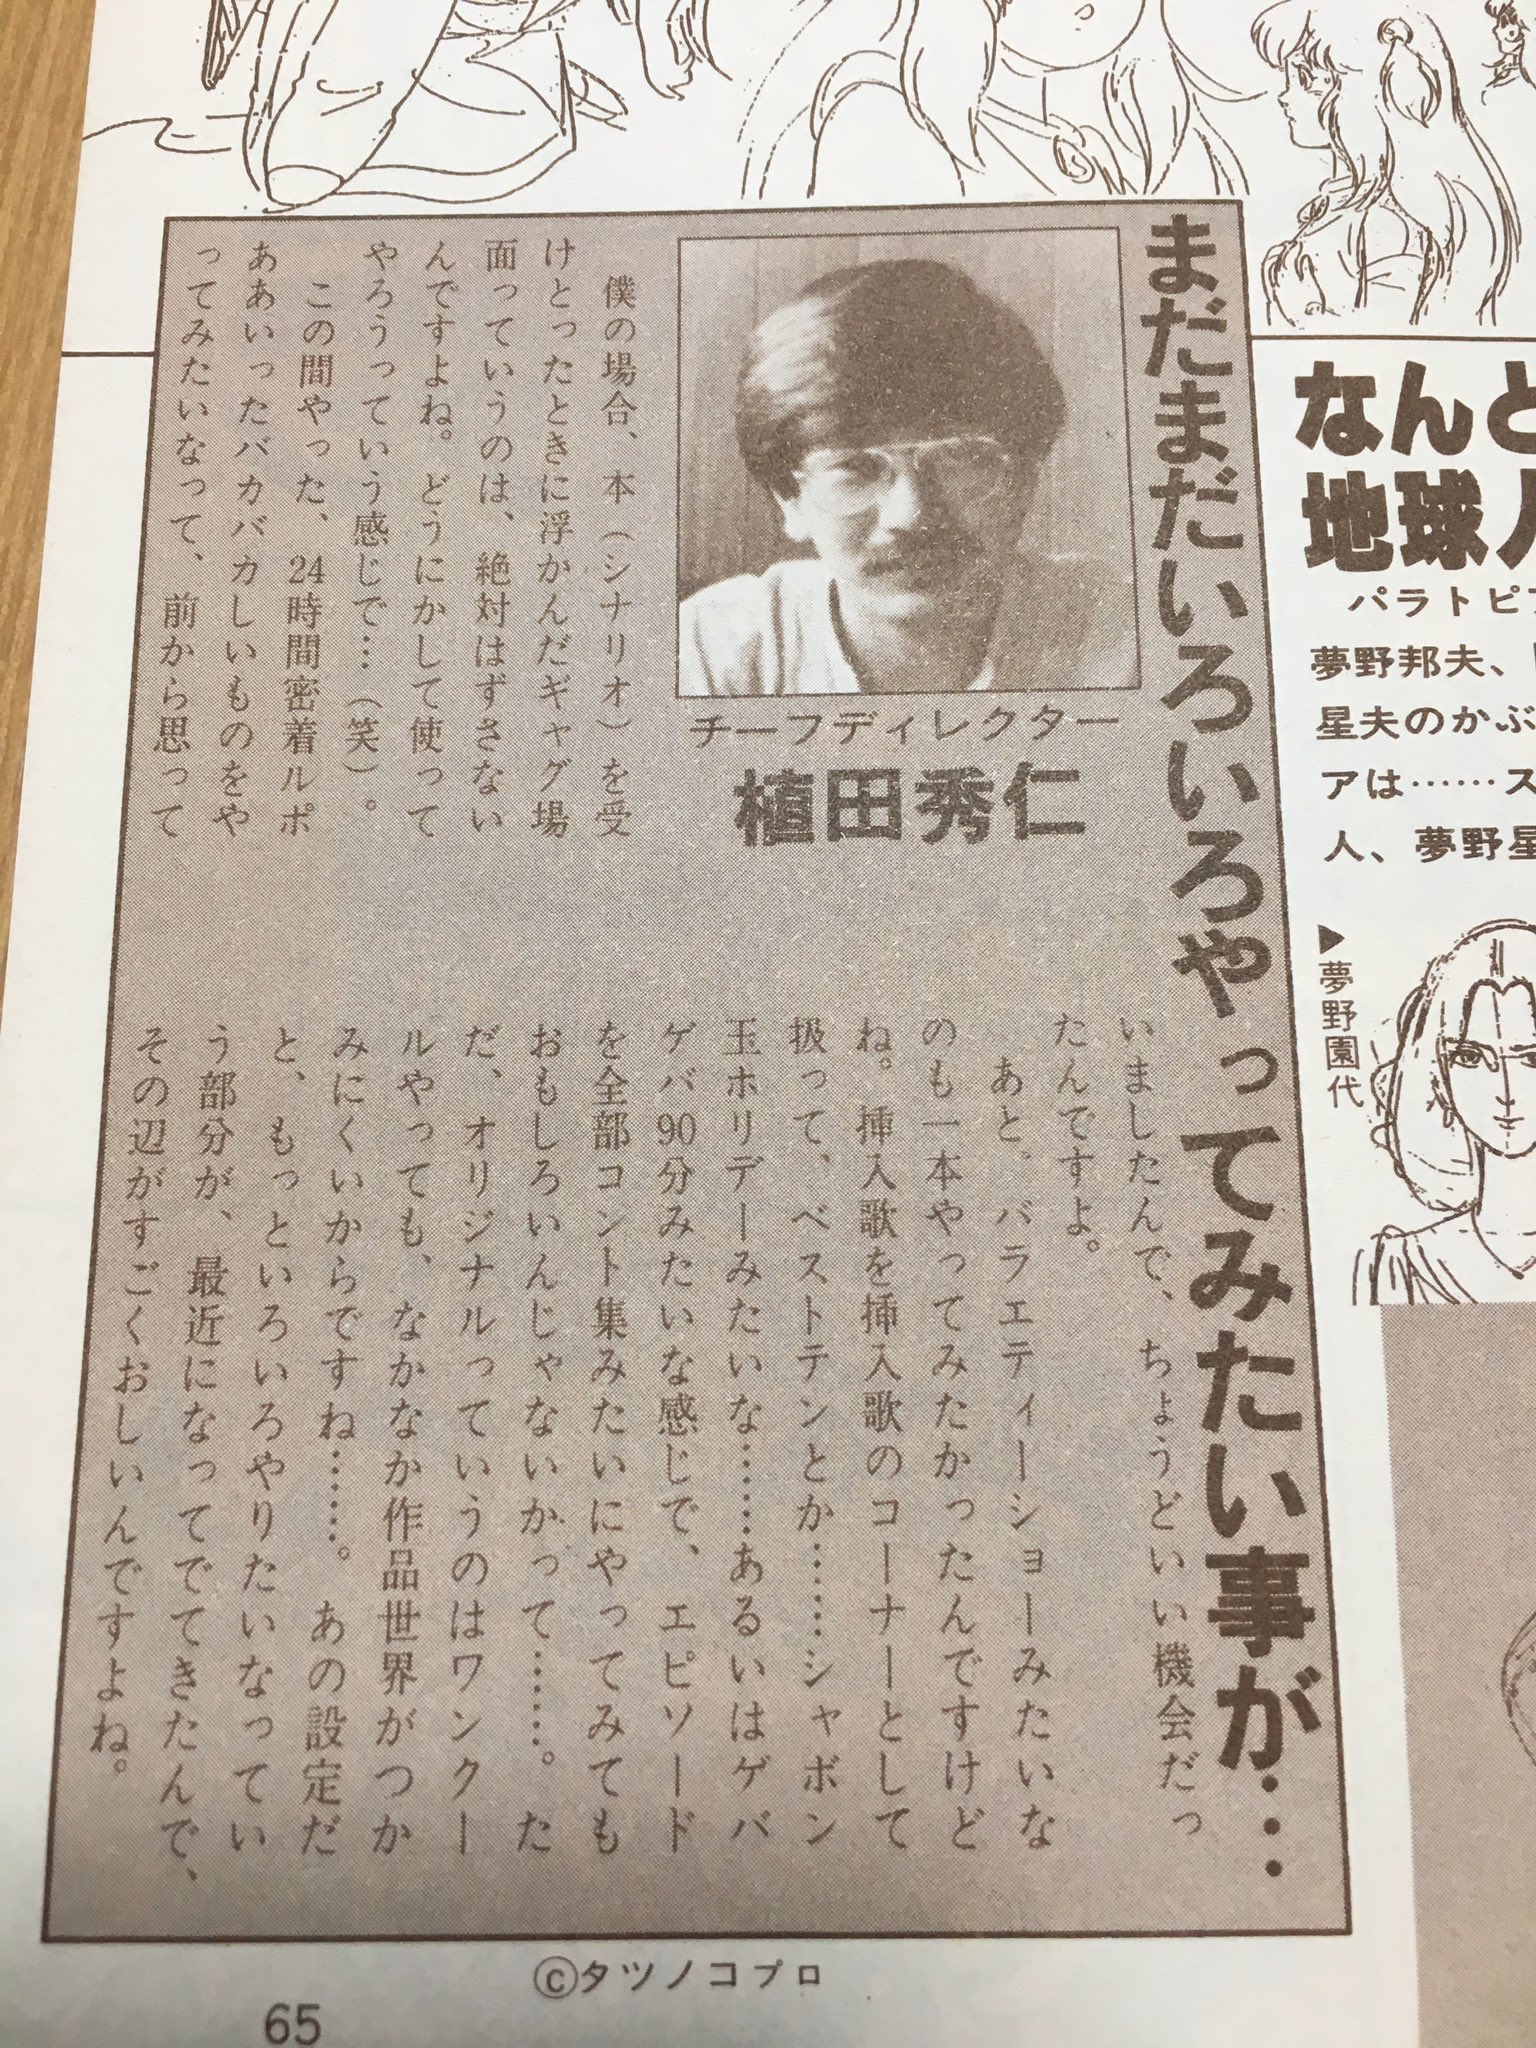 まだまだいろいろやってみたい事が…
チーフディレクター
植田秀仁
僕の場合、本（シナリオ）を受
けとったときに浮かんだギャグ場
面っていうのは、絶対はずさない
んですよね。どうにかして使って
やろうっていう感じで…（笑）。
この間やった、24時間密着ルポ
ああいったバカバカしいものをや
ってみたいなって、前から思って
いましたんで、ちょうどいい機会だっ
たんですよ。
あと、バラエティーショーみたいな
のも一本やってみたかったんですけど
ね。挿入歌を挿入歌のコーナーとして
扱って、ベストテンとか……シャボン
玉ホリデーみたいな……あるいはゲバ
ゲバ90分みたいな感じで、エピソード
を全部コント集みたいにやってみても
おもしろいんじゃないかって……。た
だ、オリジナルっていうのはワンクー
ルやっても、なかなか作品世界がつか
みにくいからですね……。あの設定だ
と、もっといろいろやりたいなってい
う部分が、最近になってでてきたんで、
その辺がすごくおしいんですよね。
なんと
地球人
パラトピ
夢野邦夫、
星夫のかぶ
アは……ス
人、夢野星
▶夢野園代
©タツノコプロ
65